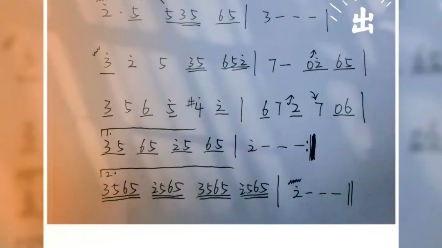 出
2̇·5 535 65 | 3 - - - |
3̇ 2̇ 5 35 652̇ | 7 - 02̇ 65 |
3 5 6 5 #4 2̇ | 6 7 2̇ 7 06 |
1. 35 65 2̇5 65 | 2̇ - - - :‖
2. 3565 2̇565 3565 2̇565 | 2̇ - - - ‖